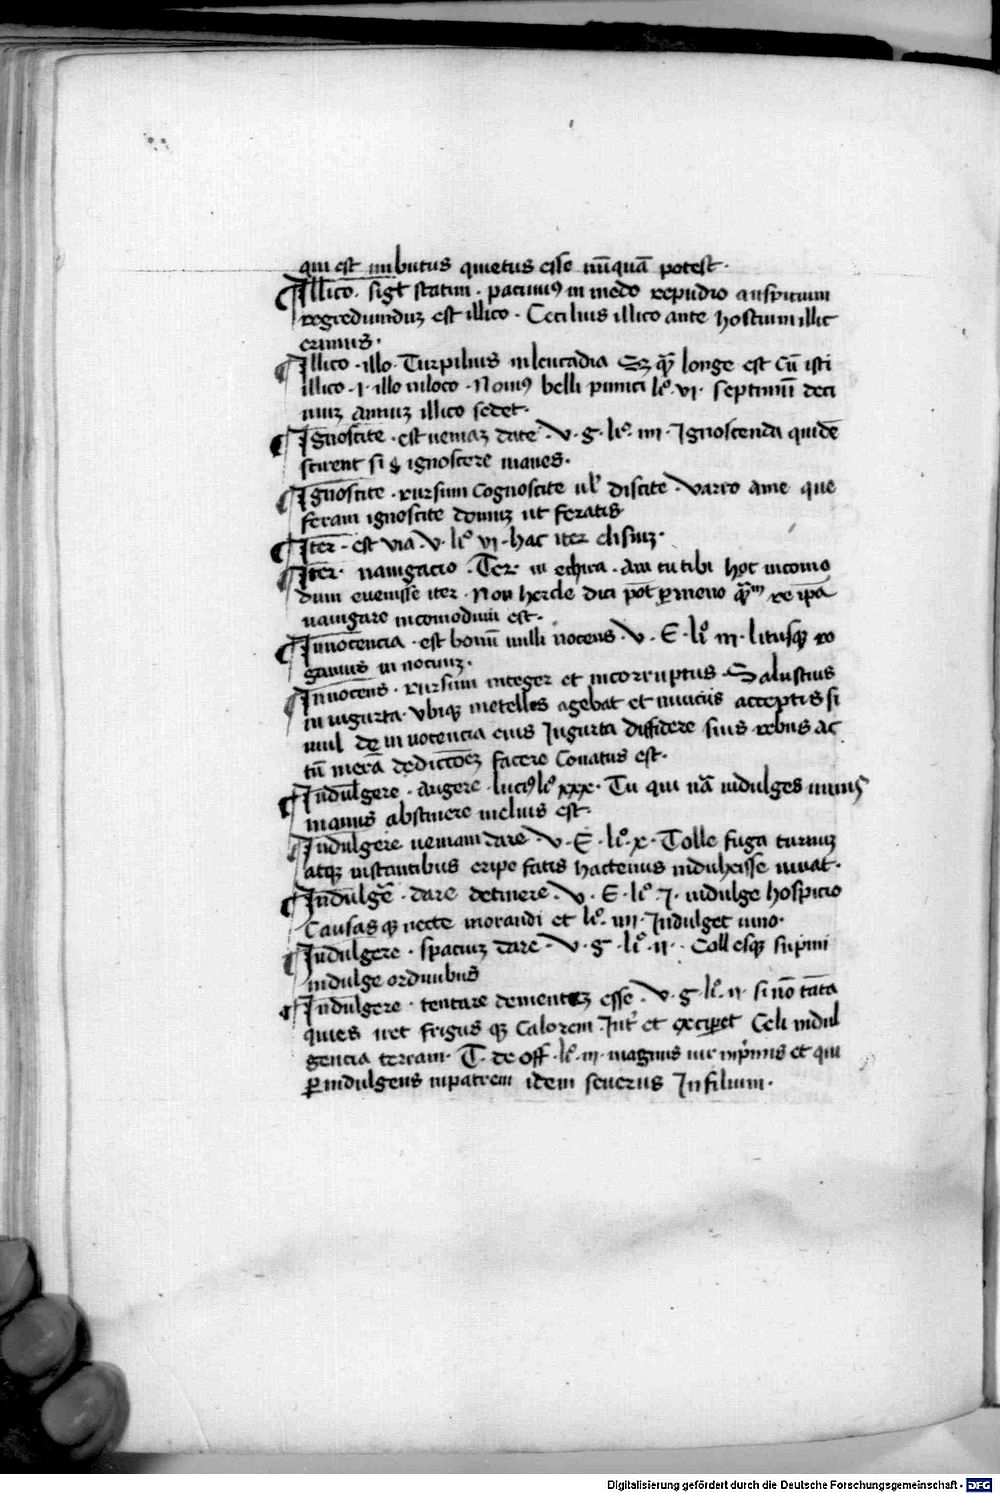 qui est imbutus quietus esse nūquā potest·
Illico· sigt̄ statim· pacuuiꝰ in medo repudio auspitium
regrediunduꝫ est illico· Cecilius illico ante hostium illic
erimus·
Illico· illo· Turpilius in leucadia Sꝫ qͣ̄ longe est Cū isti
illico· i· illo in loco· Noniꝰ belli punici lio· vi· septimū deci
muꝫ annuꝫ illico sedet·
Ignoscite· est ueniaꝫ date· v· g· lio· iiii· Ignoscenda quidē
scirent si ignoscere manes·
Ignoscite· rursum Cognoscite ul̄ discite· varro ame que
feram ignoscite domuꝫ ut feratis
Iter· est via· v· lio vi· hac iter elisiuꝫ·
Iter· nauigacio· Ter· in echira· An tu tibi hoc incomo
dum euenisse iter· Non hercle dici pōt ꝑmeno qͣ̄ᵐ re ipā
nauigare incomodum est·
Innocencia· est bonū nulli nocens· v· E· lio· iii· litusqꝫ ro
gamus in nocuuꝫ·
Innocens· rursum integer et incorruptus· Salustius
in iugurta· vbiqꝫ metellus agebat et inuiciis acceptis si
mul de in nocencia eius Iugurta diffidere suis rebus ac
tū merā dedictōeꝫ facere Conatus est·
Indulgere· Augere· luciꝰ lio xxx· Tu qui nā indulges nimis
manus abstinere melius est·
Indulgere ueniam dare· v· E· lio· x· Tolle fuga turnuꝫ
atqꝫ instantibus eripe fatis hactenus indulxisse iuuat·
Indulgē· dare detinere· v· E· lio· I· indulge hospicio
Causas qꝫ necte morandi et lio· iiii· Indulget uino·
Indulgere· spaciuꝫ dare· v· g· lio· ii· Coll esqꝫ supini
indulge ordinibus
Indulgere· tentare dementeꝫ esse· v· g· lio· ii· si nō tāta
quies iret frigus qꝫ Calorem Int̄ et exciperet Celi indul
gencia terram· T· de off· lio· iii· magnus uir inp̄mis et qui
ꝑ indulgens in patrem idem seuerus In filium·
Digitalisierung gefördert durch die Deutsche Forschungsgemeinschaft - DFG